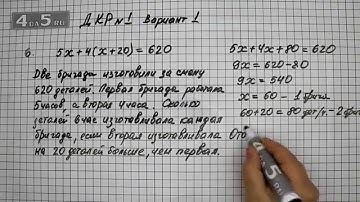 4DA5.RU
ДКР №1 Вариант 1
6. 5x+4(x+20)=620
Две бригады изготовили за смену
620 деталей. Первая бригада работала
5 часов, а вторая 4 часа. Сколько
деталей в час изготовивала каждая
бригада, если вторая изготовивала
на 20 деталей больше, чем первая.
5x+4x+80=620
9x=620-80
9x=540
x=60 - 1 бриг.
60+20=80 дет/ч - 2